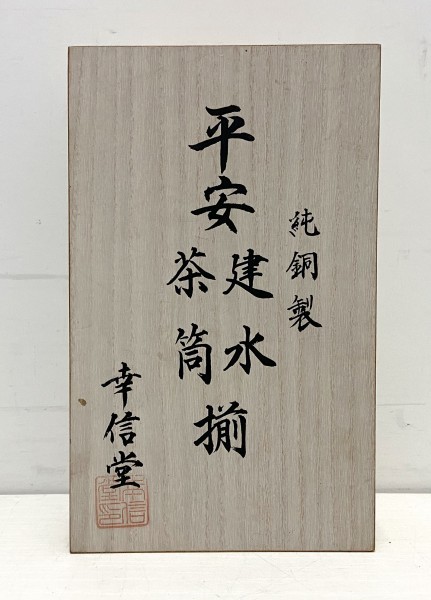 純銅製
平安
建水
茶筒
揃
幸信堂